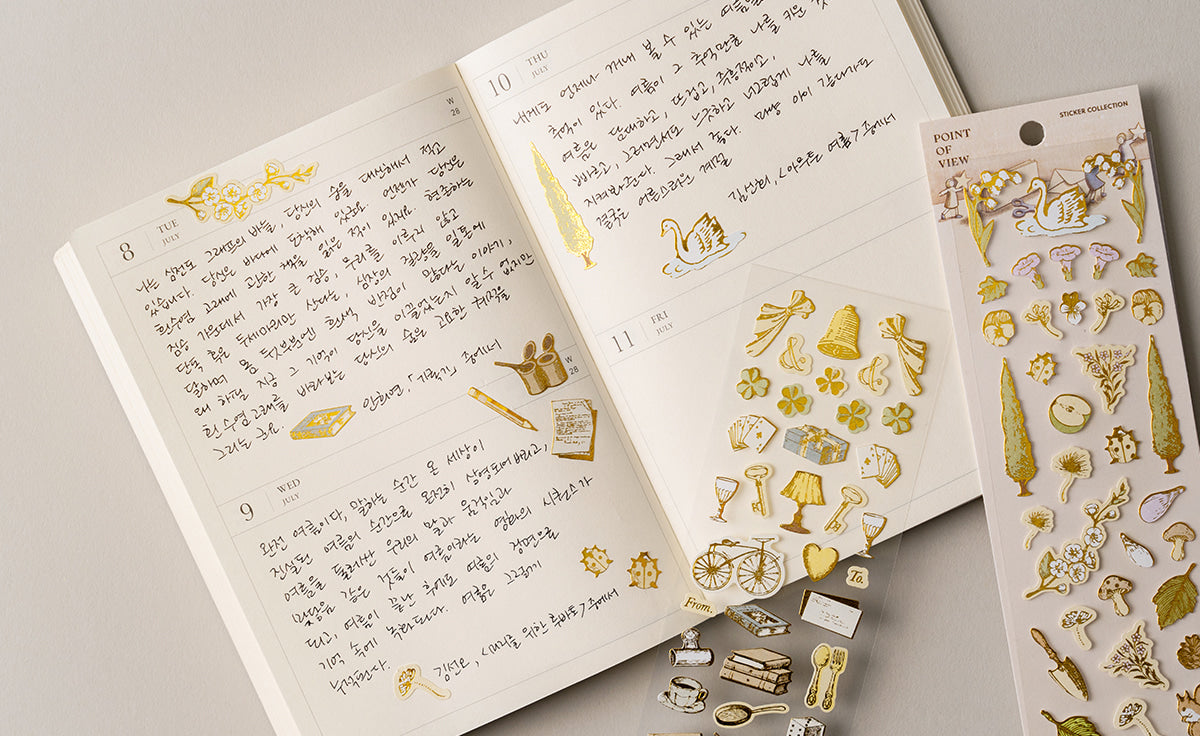 8
TUE
JULY
W
28
나는 심전도 그래프의 바늘, 당신의 숨을 대신해서 적고
있습니다. 당신은 바다에 도착해 있군요. 언젠가 당신은
흰수염고래에 관한 책을 읽은 적이 있지요. 현존하는
짐승 가운데서 가장 큰 짐승, 무리를 이루지 않고
단독 혹은 두세마리만 산다는, 심장의
달하며 몸 뒷부분에 흰색 반점이 많다는 이야기,
왜 하필 지금 그 기억이 당신을 이끌었는지 알 수 없지만
흰수염고래를 바라보는 당신의 숨을 고요한 궤적을
그리는군요.
안희연, 「기록기」 중에서
W
28
9
WED
JULY
완전 여름이다, 말하는 순간 온 세상이
진실로 여름의 순간으로 온전히 상영되어버리고,
여름을 둘러싼 우리의 말과 움직임과
마음 같은 것들이 여름이라는 영화의 시퀀스가
되고, 여름이 끝난 후에도 여름의 장면으로
기억 속에 녹화된다. 여름은 그렇게
누적된다.
김선오, <미리를 위한 루바토> 중에서
10
THU
JULY
내게도 언제나 꺼내 볼 수 있는 여름의
추억이 있다. 여름이 그 추억만큼 나를 키운 것
여름은 담대하고, 뜨겁고, 즉흥적이고,
빠르고, 그러면서도 느긋하고 너그럽게 나를
지켜봐준다. 그래서 좋다. 마냥 아이 같다가도
결국은 어른스러운 계절
김신회, <아무튼 여름> 중에서
11
FRI
JULY
To.
From.
POINT
OF
VIEW
STICKER COLLECTION